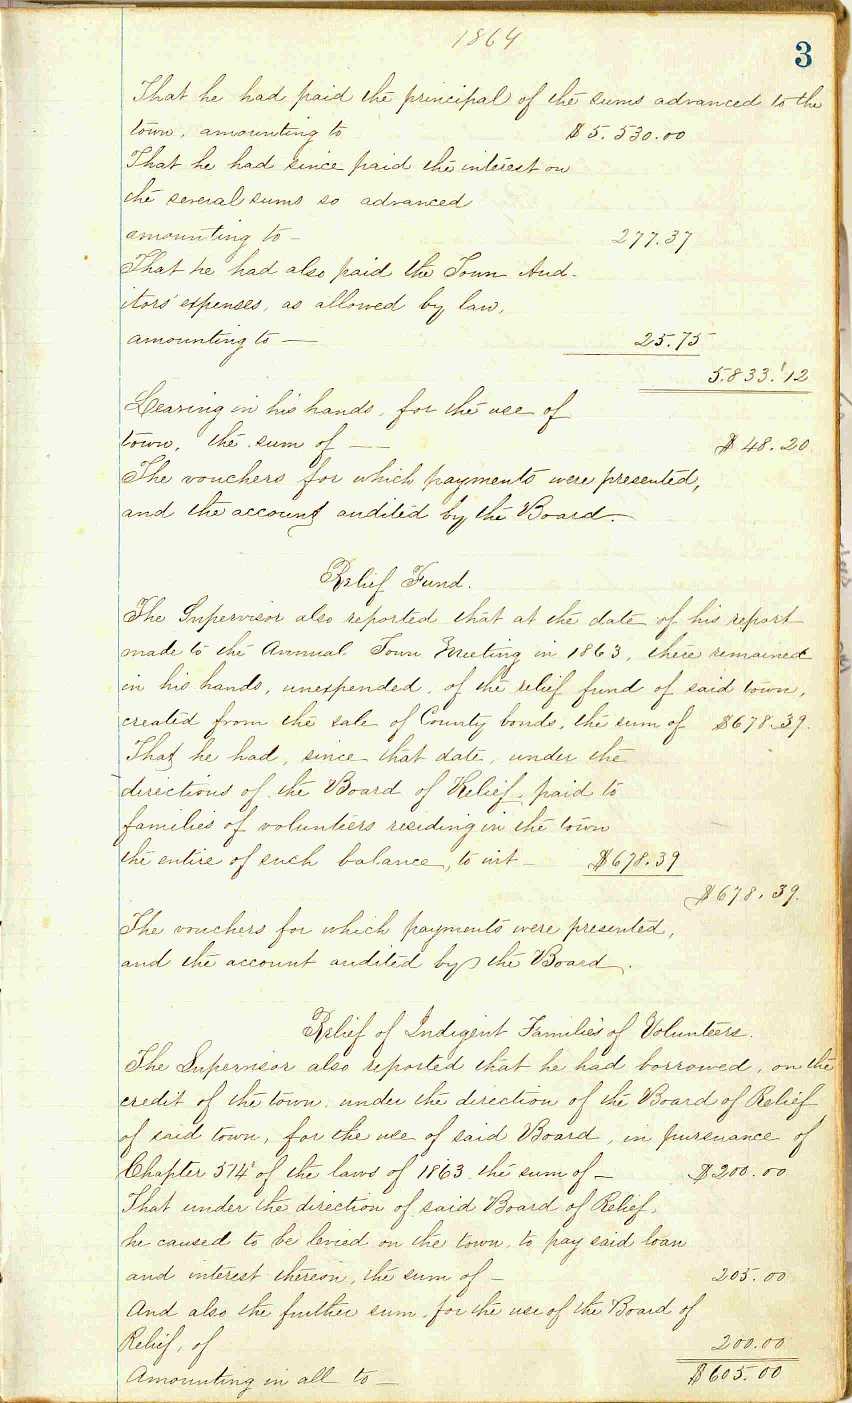 1864
3
That he had paid the principal of the sums advanced to the
town, amounting to $5.530.00
That he had since paid the interest on
the several sums so advanced
amounting to — 277.37
That he had also paid the Town Aud-
itors' expenses, as allowed by law,
amounting to — 25.75
5.833.12
Leaving in his hands, for the use of
town, the sum of — — $48.20
The vouchers for which payments were presented,
and the account audited by the Board.—
Relief Fund.
The Supervisor also reported that at the date of his report
made to the Annual Town Meeting in 1863, there remained
in his hands, unexpended, of the relief fund of said town,
created from the sale of County bonds, the sum of $678.39.
That he had, since that date, under the
directions of the Board of Relief, paid to
families of volunteers residing in the town
the entire of such balance, to wit — $678.39
$678.39.
The vouchers for which payments were presented,
and the account audited by the Board.
Relief of Indigent Families of Volunteers.
The Supervisor also reported that he had borrowed, on the
credit of the town, under the direction of the Board of Relief
of said town, for the use of said Board, in pursuance of
Chapter 514 of the laws of 1863 the sum of — $200.00
That under the direction of said Board of Relief,
he caused to be levied on the town, to pay said loan
and interest thereon, the sum of — 205.00
And also the further sum, for the use of the Board of
Relief, of 200.00
Amounting in all to — $605.00